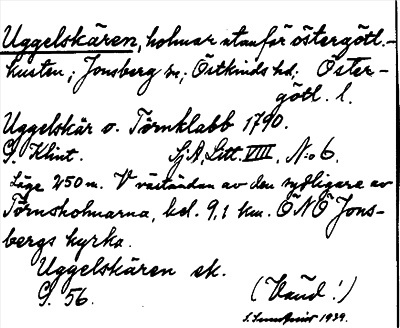 Uggelskären, holmar utanför östergötl.-
kusten; Jonsberg sn; Östkinds hd; Öster-
götl. l.
Uggelskär o. Törnklabb 1790.
G. Klint. SjA, Litt. VIIII, N:o 6.
Läge 250 m. V väständan av den sydligare av
Törnsholmarna, kel. 9,1 km. ÖNÖ Jons-
bergs kyrka.
Uggelskären ek.
G. 56.
(Vänd!)
1939.